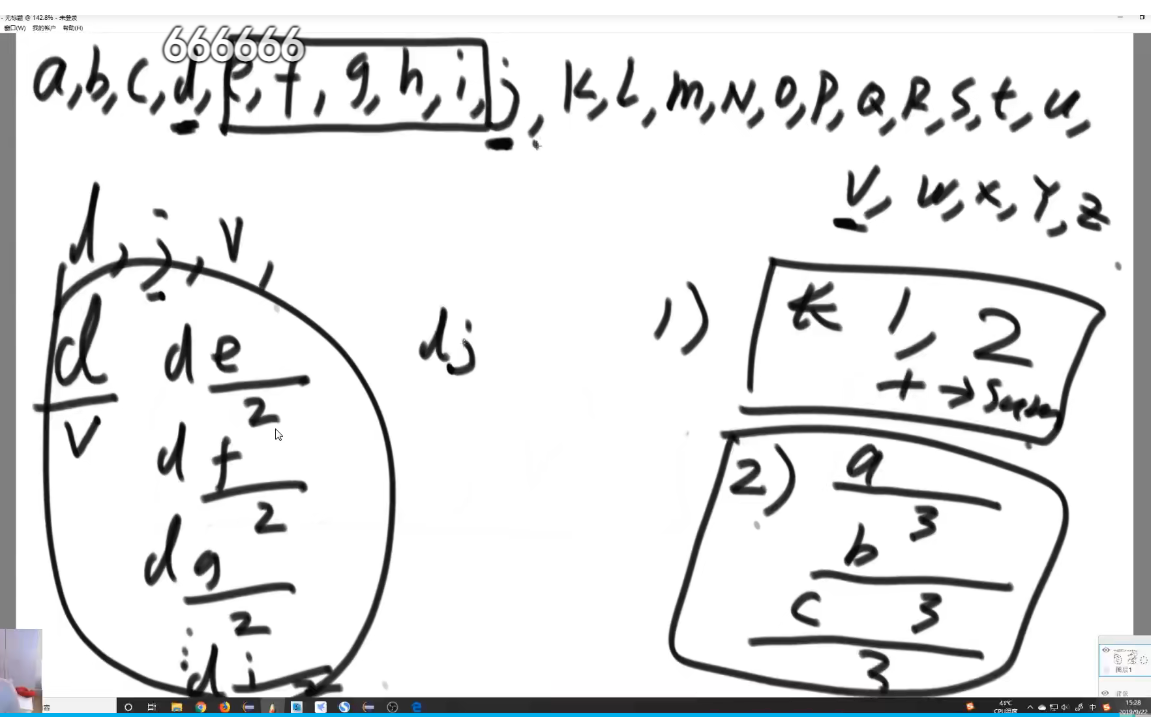 - 无标题 @ 142.8% - 未登录
窗口(W) 我的帐户 帮助(H)
666666
a,b,c,d,e,f,g,h,i,j,K,L,m,N,O,P,Q,R,S,t,u,
V,W,X,Y,Z
d,j,v,
d
v
de
2
df
2
dg
2
di
2
dj
1) K 1, 2
+ →
2) a
3
b
3
c
3
图层1
背景
41℃
CPU温度
中
15:28
2019/9/22